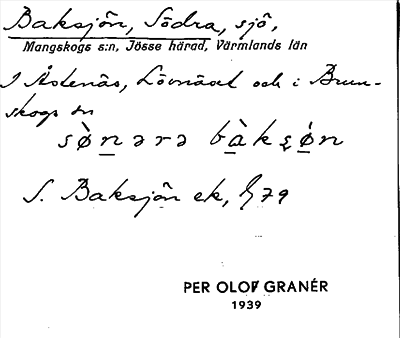 Baksjön, Södra, sjö,
Mangskogs s:n, Jösse härad, Värmlands län
I Åstenäs, Lövnäset och i Brun-
skogs sn
sø̀nərə bàksø̣n
S. Baksjön ek, 79
PER OLOF GRANÉR
1939